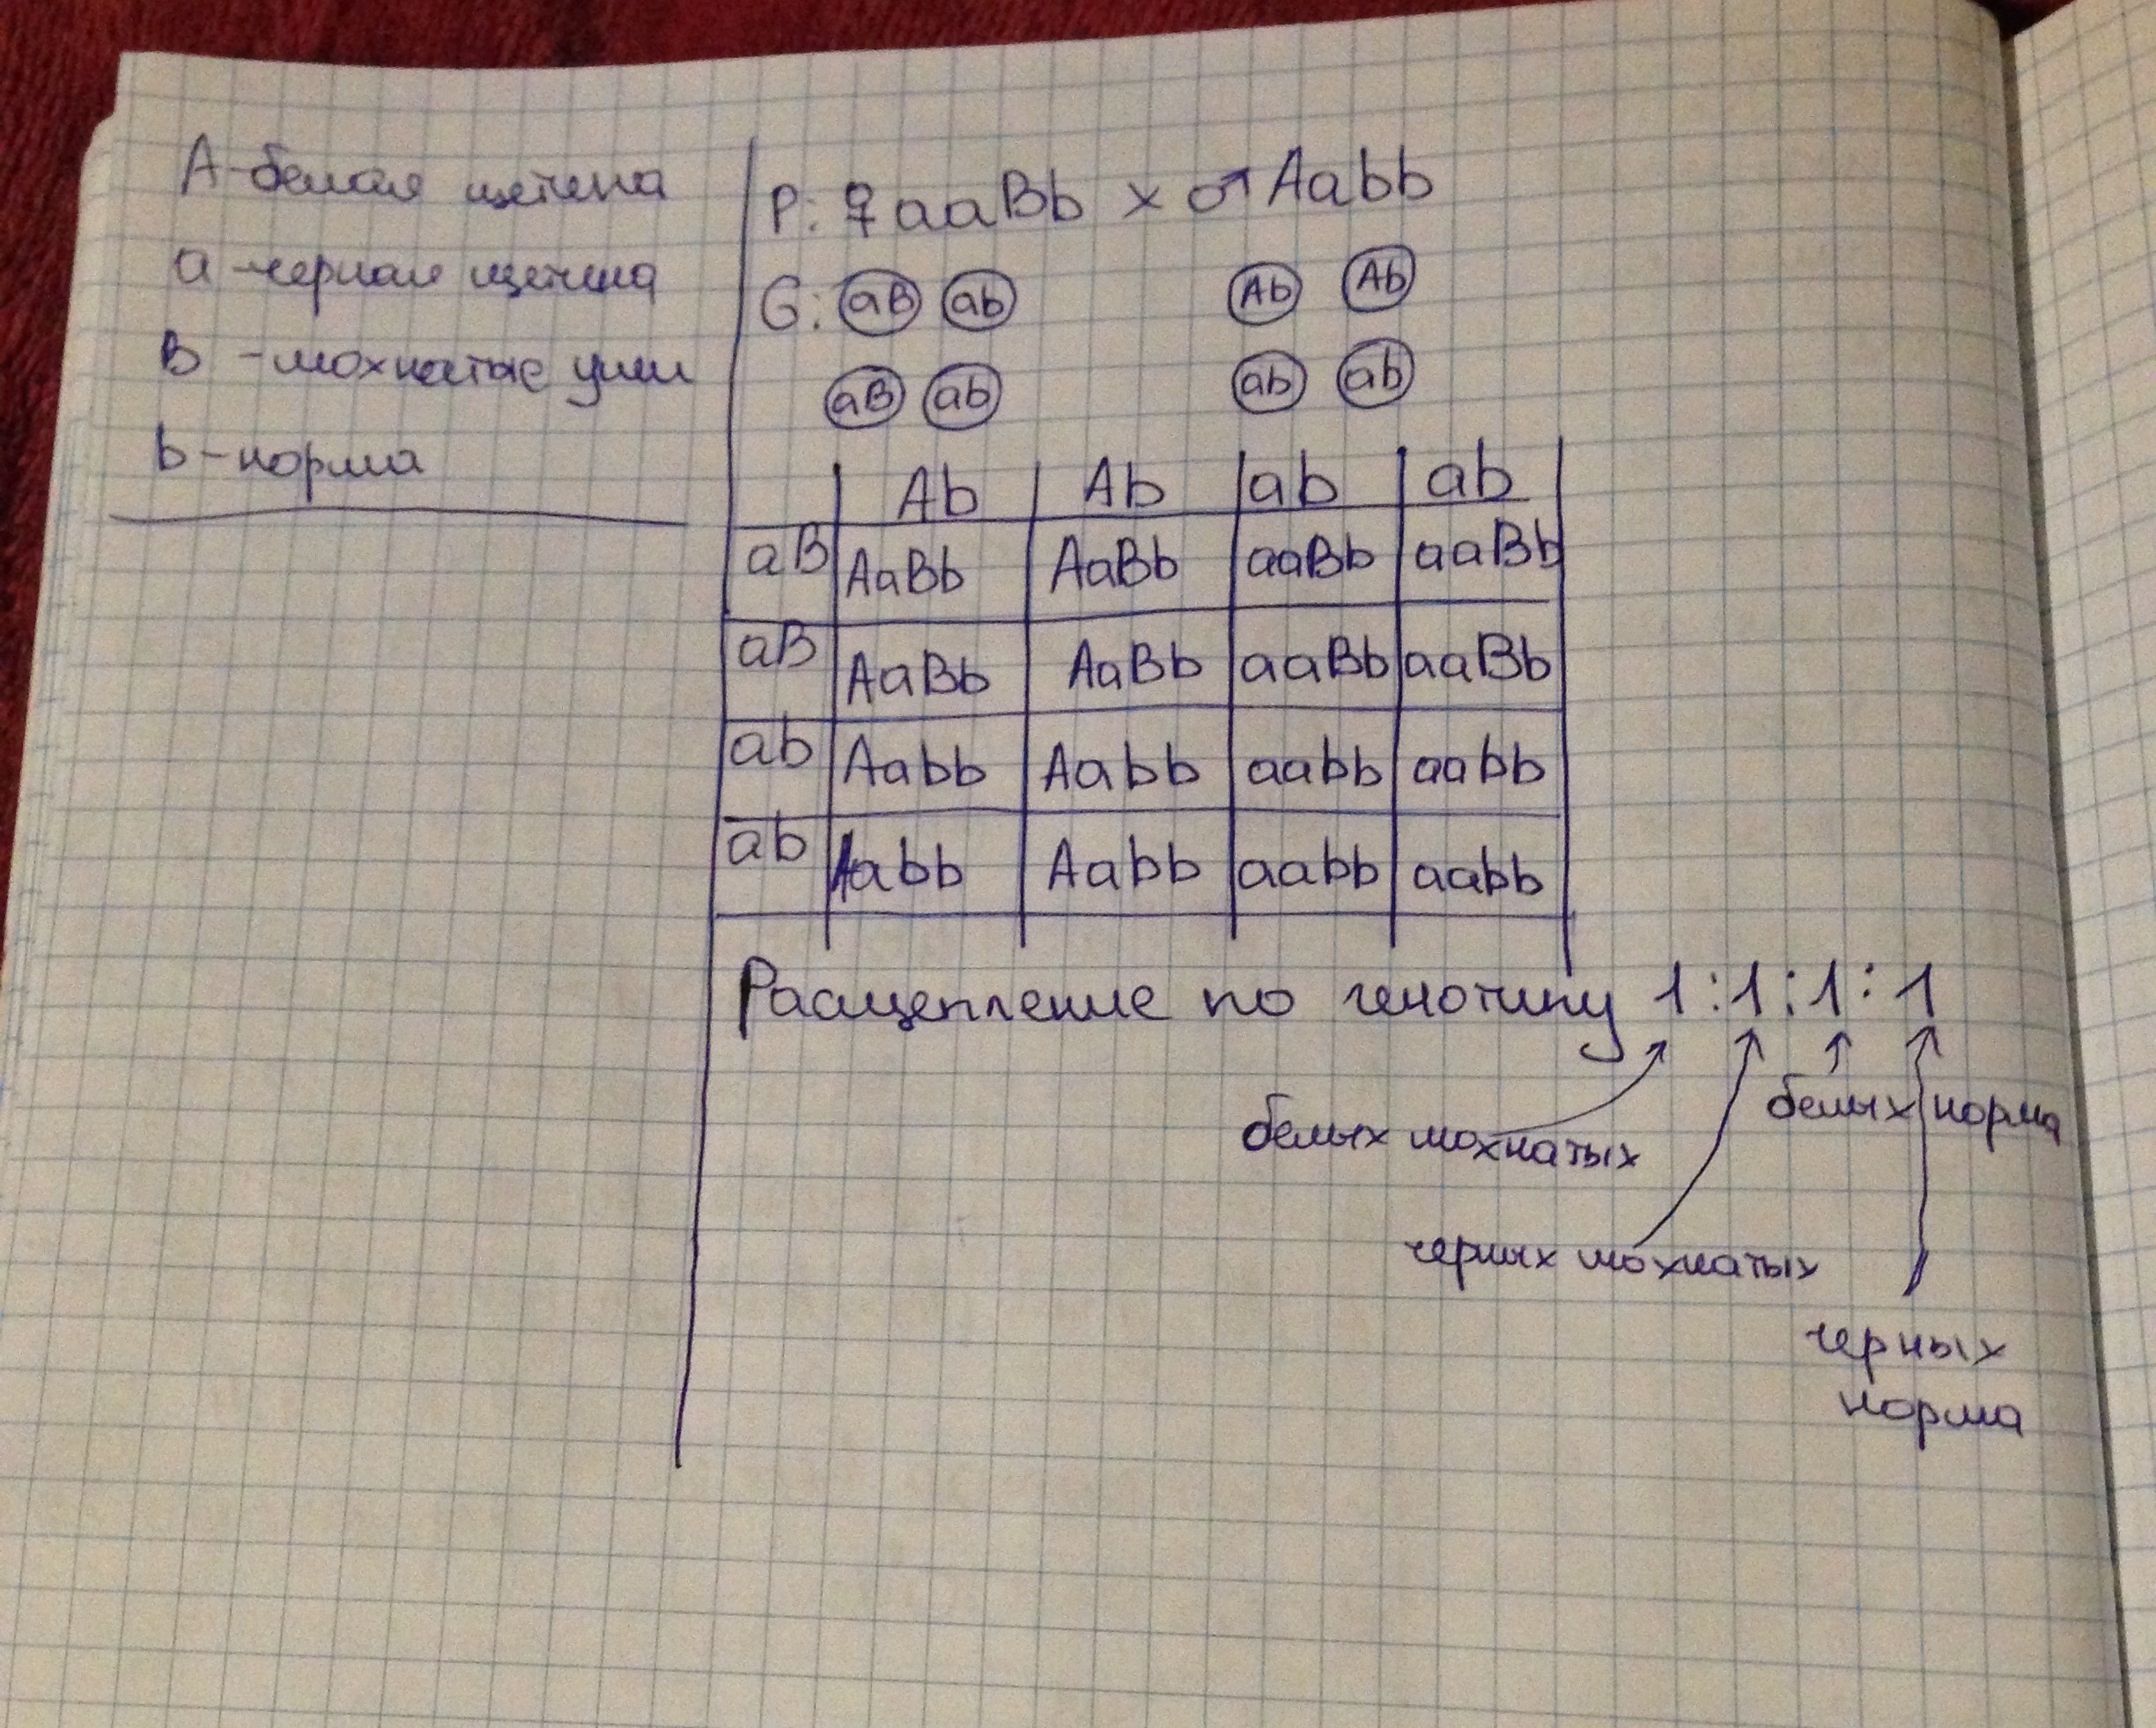 А-белая щетина
а-черная щетина
В -мохнатые уши
b-норма
P: ♀ aaBb × ♂ Aabb
G: aB ab Ab Ab
aB ab ab ab
Ab Ab ab ab
aB AaBb AaBb aaBb aaBb
aB AaBb AaBb aaBb aaBb
ab Aabb Aabb aabb aabb
ab Aabb Aabb aabb aabb
Расщепление по генотипу 1:1:1:1
белых норма
белых мохнатых
черных мохнатых
черных
норма